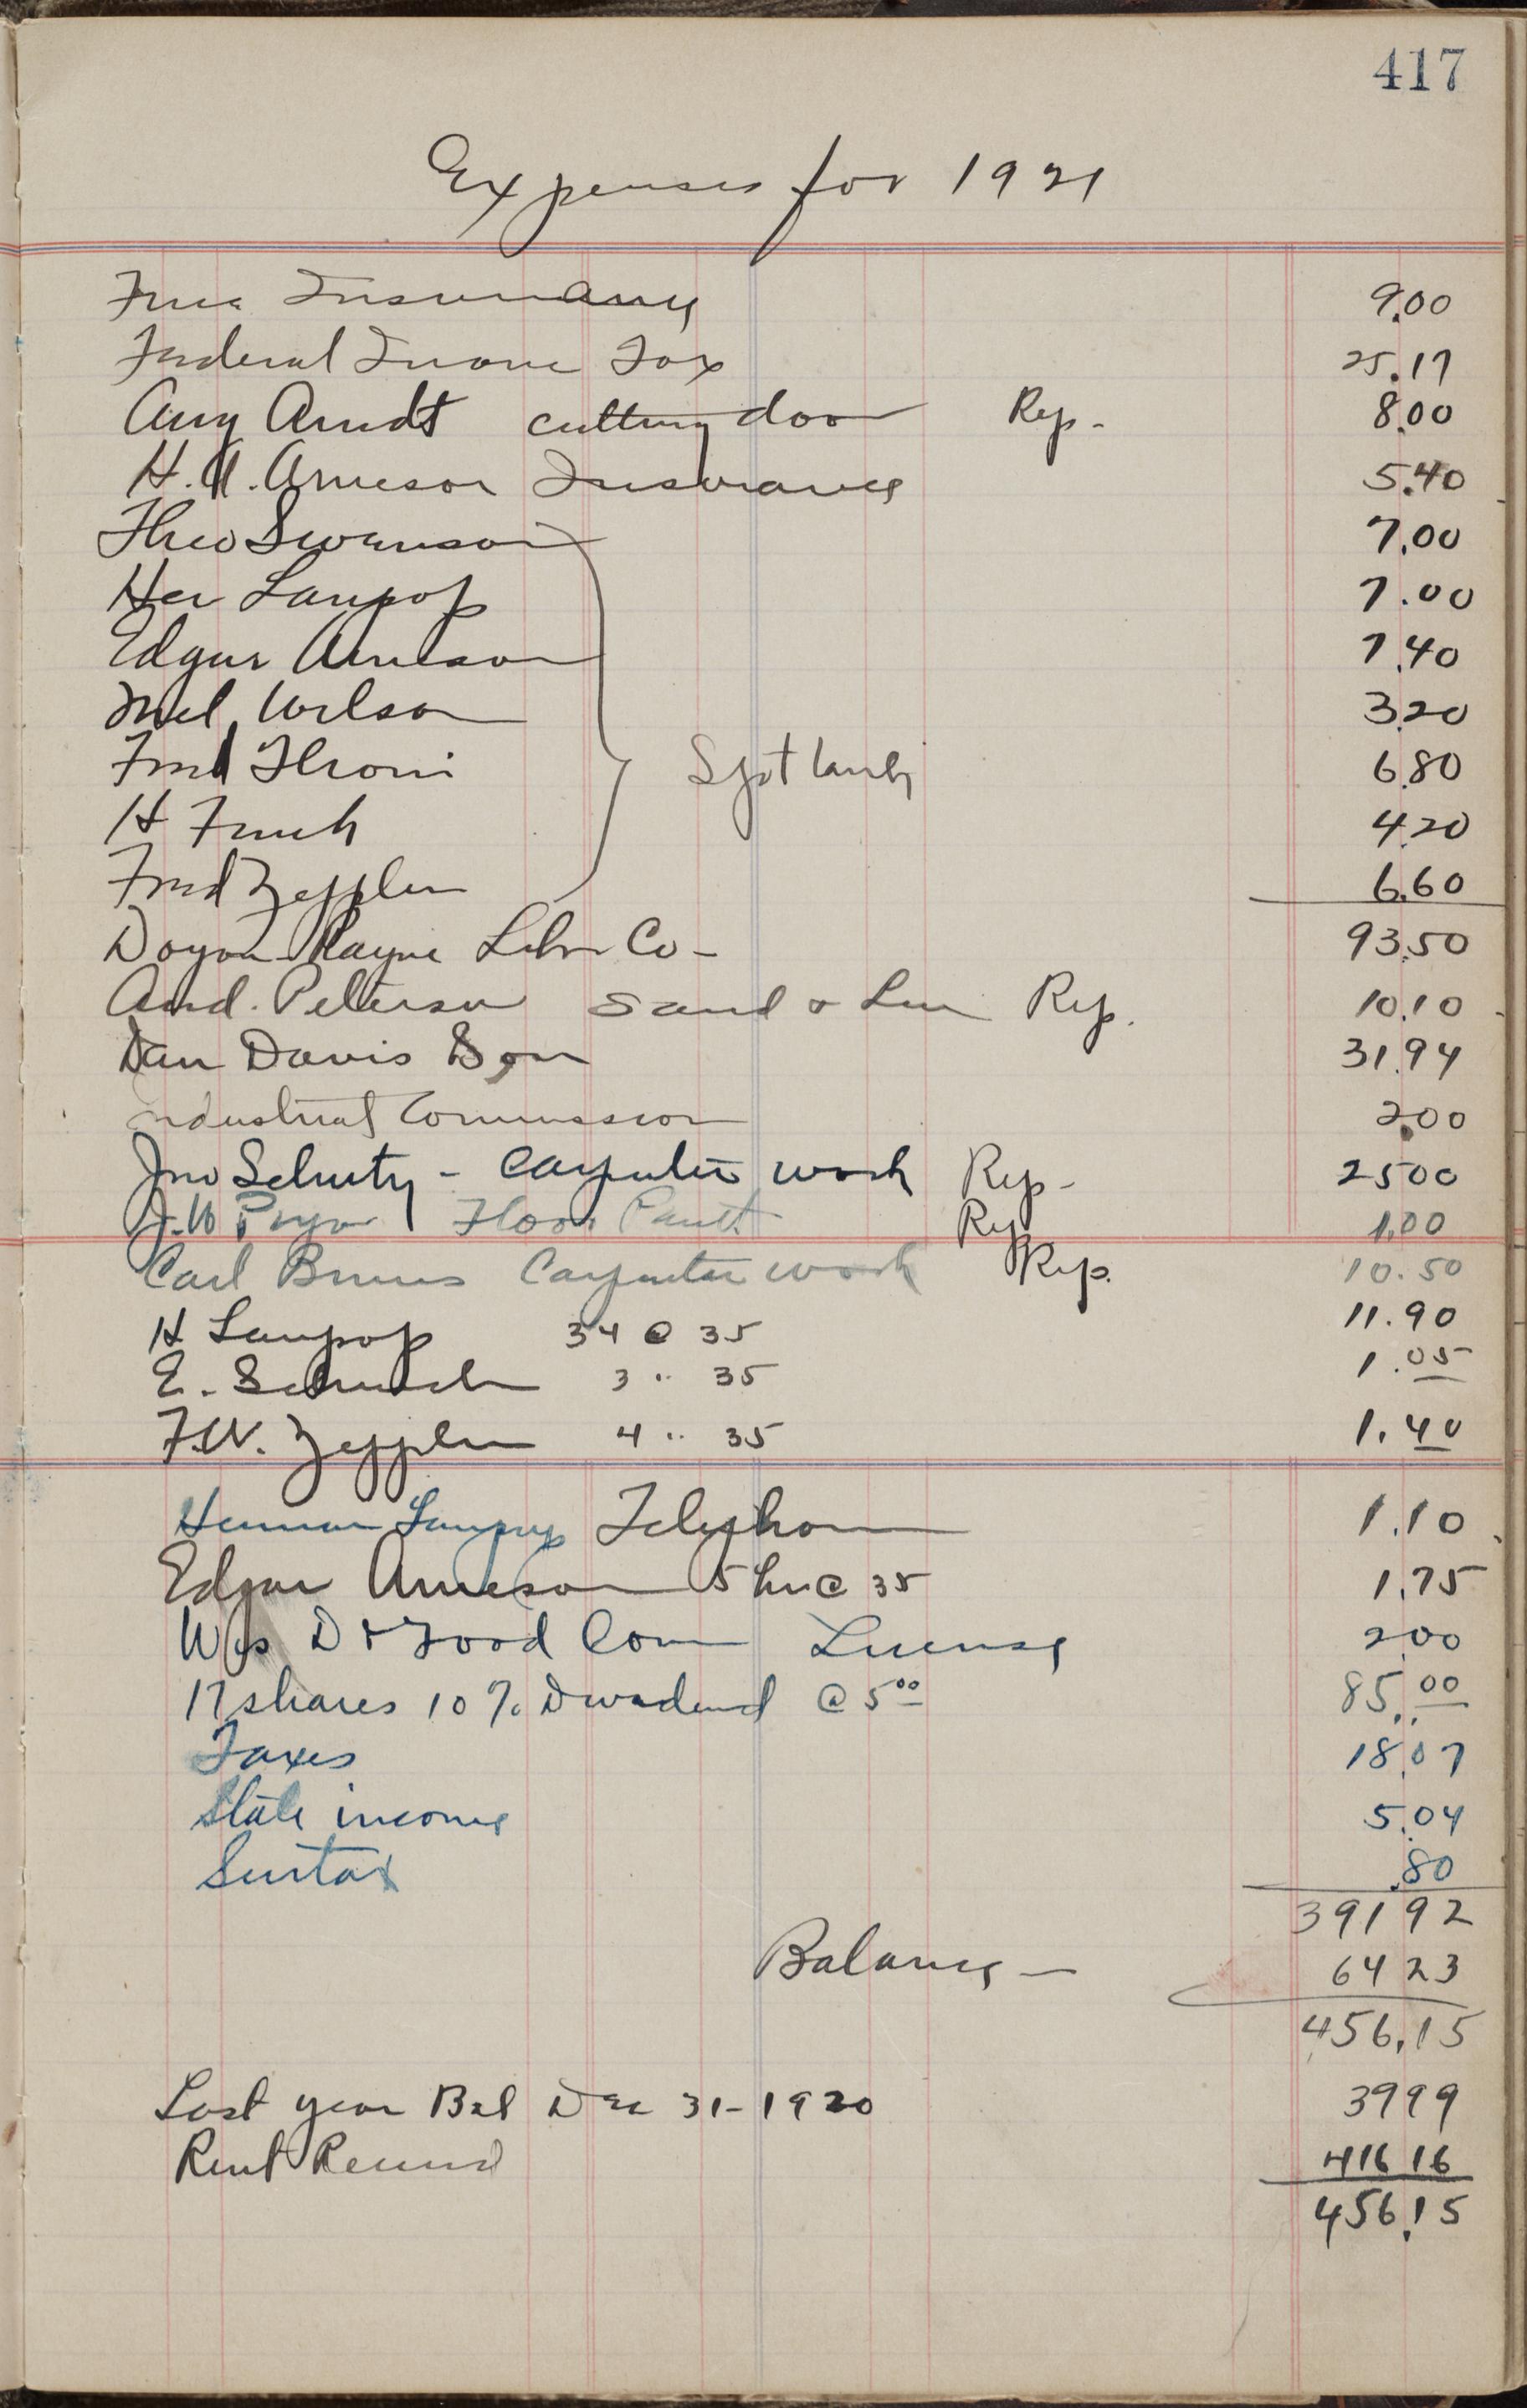 417
Expenses for 1921
Fire Insurance 9.00
Federal Income Tax 25.17
Aug Arndt cutting door Rep. 8.00
H. A. Arneson Insurance 5.40
Theo Swanson 7.00
Her Laupop 7.00
Edgar Arneson 7.40
Mel Wilson 3.20
Fred 6.80
H 4.20
Fred Zepplin 6.60
Spotland
Doyon Rayne Lbr Co - 93.50
And. Peterson Sand & Lime Rep. 10.10
Dan Davis Son 31.94
Industrial Commission 2.00
Jno Schultz - Carpenter work Rep - 25 00
J.W. Pryor Floor Rep 1.00
Carl Bruns Carpenter work Rep. 10.50
H Laupop 34 @ 35 11.90
E. 3 " 35 1.05
F.W. Zepplin 4 " 35 1.40
Herman Laupop Telephone 1.10
Edgar Arneson 5 hrs @ 35 1.75
Wis D & Food Com License 2.00
17 shares 10 % Dividend @ 5.00 85.00
Taxes 18.07
State income 5.04
Surtax .80
391 92
Balance - 64 23
456.15
Last year Bal Dec 31 - 1920 39 99
Rent 416 16
456.15